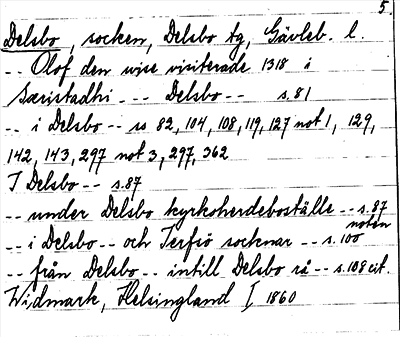 5.
Delsbo, socken, Delsbo tg, Gävleb. l.
-- Olof den wise visiterade 1318 i
Særistadhi --- Delsbo -- s.81
-- i Delsbo -- ss 82, 104, 108, 119, 127 not 1, 129,
142, 143, 297 not 3, 297, 362
I Delsbo -- s.87
-- under Delsbo kyrkoherdeboställe -- s.87
noten
-- i Delsbo -- och Terfsiö socknar -- s.100
-- från Delsbo -- intill Delsbo rå -- s.108 cit.
Widmark, Helsingland I 1860